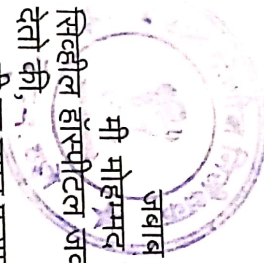 जबाब
मी मोहम्मद
सिव्हील हॉस्पीटल जव
देतो की,